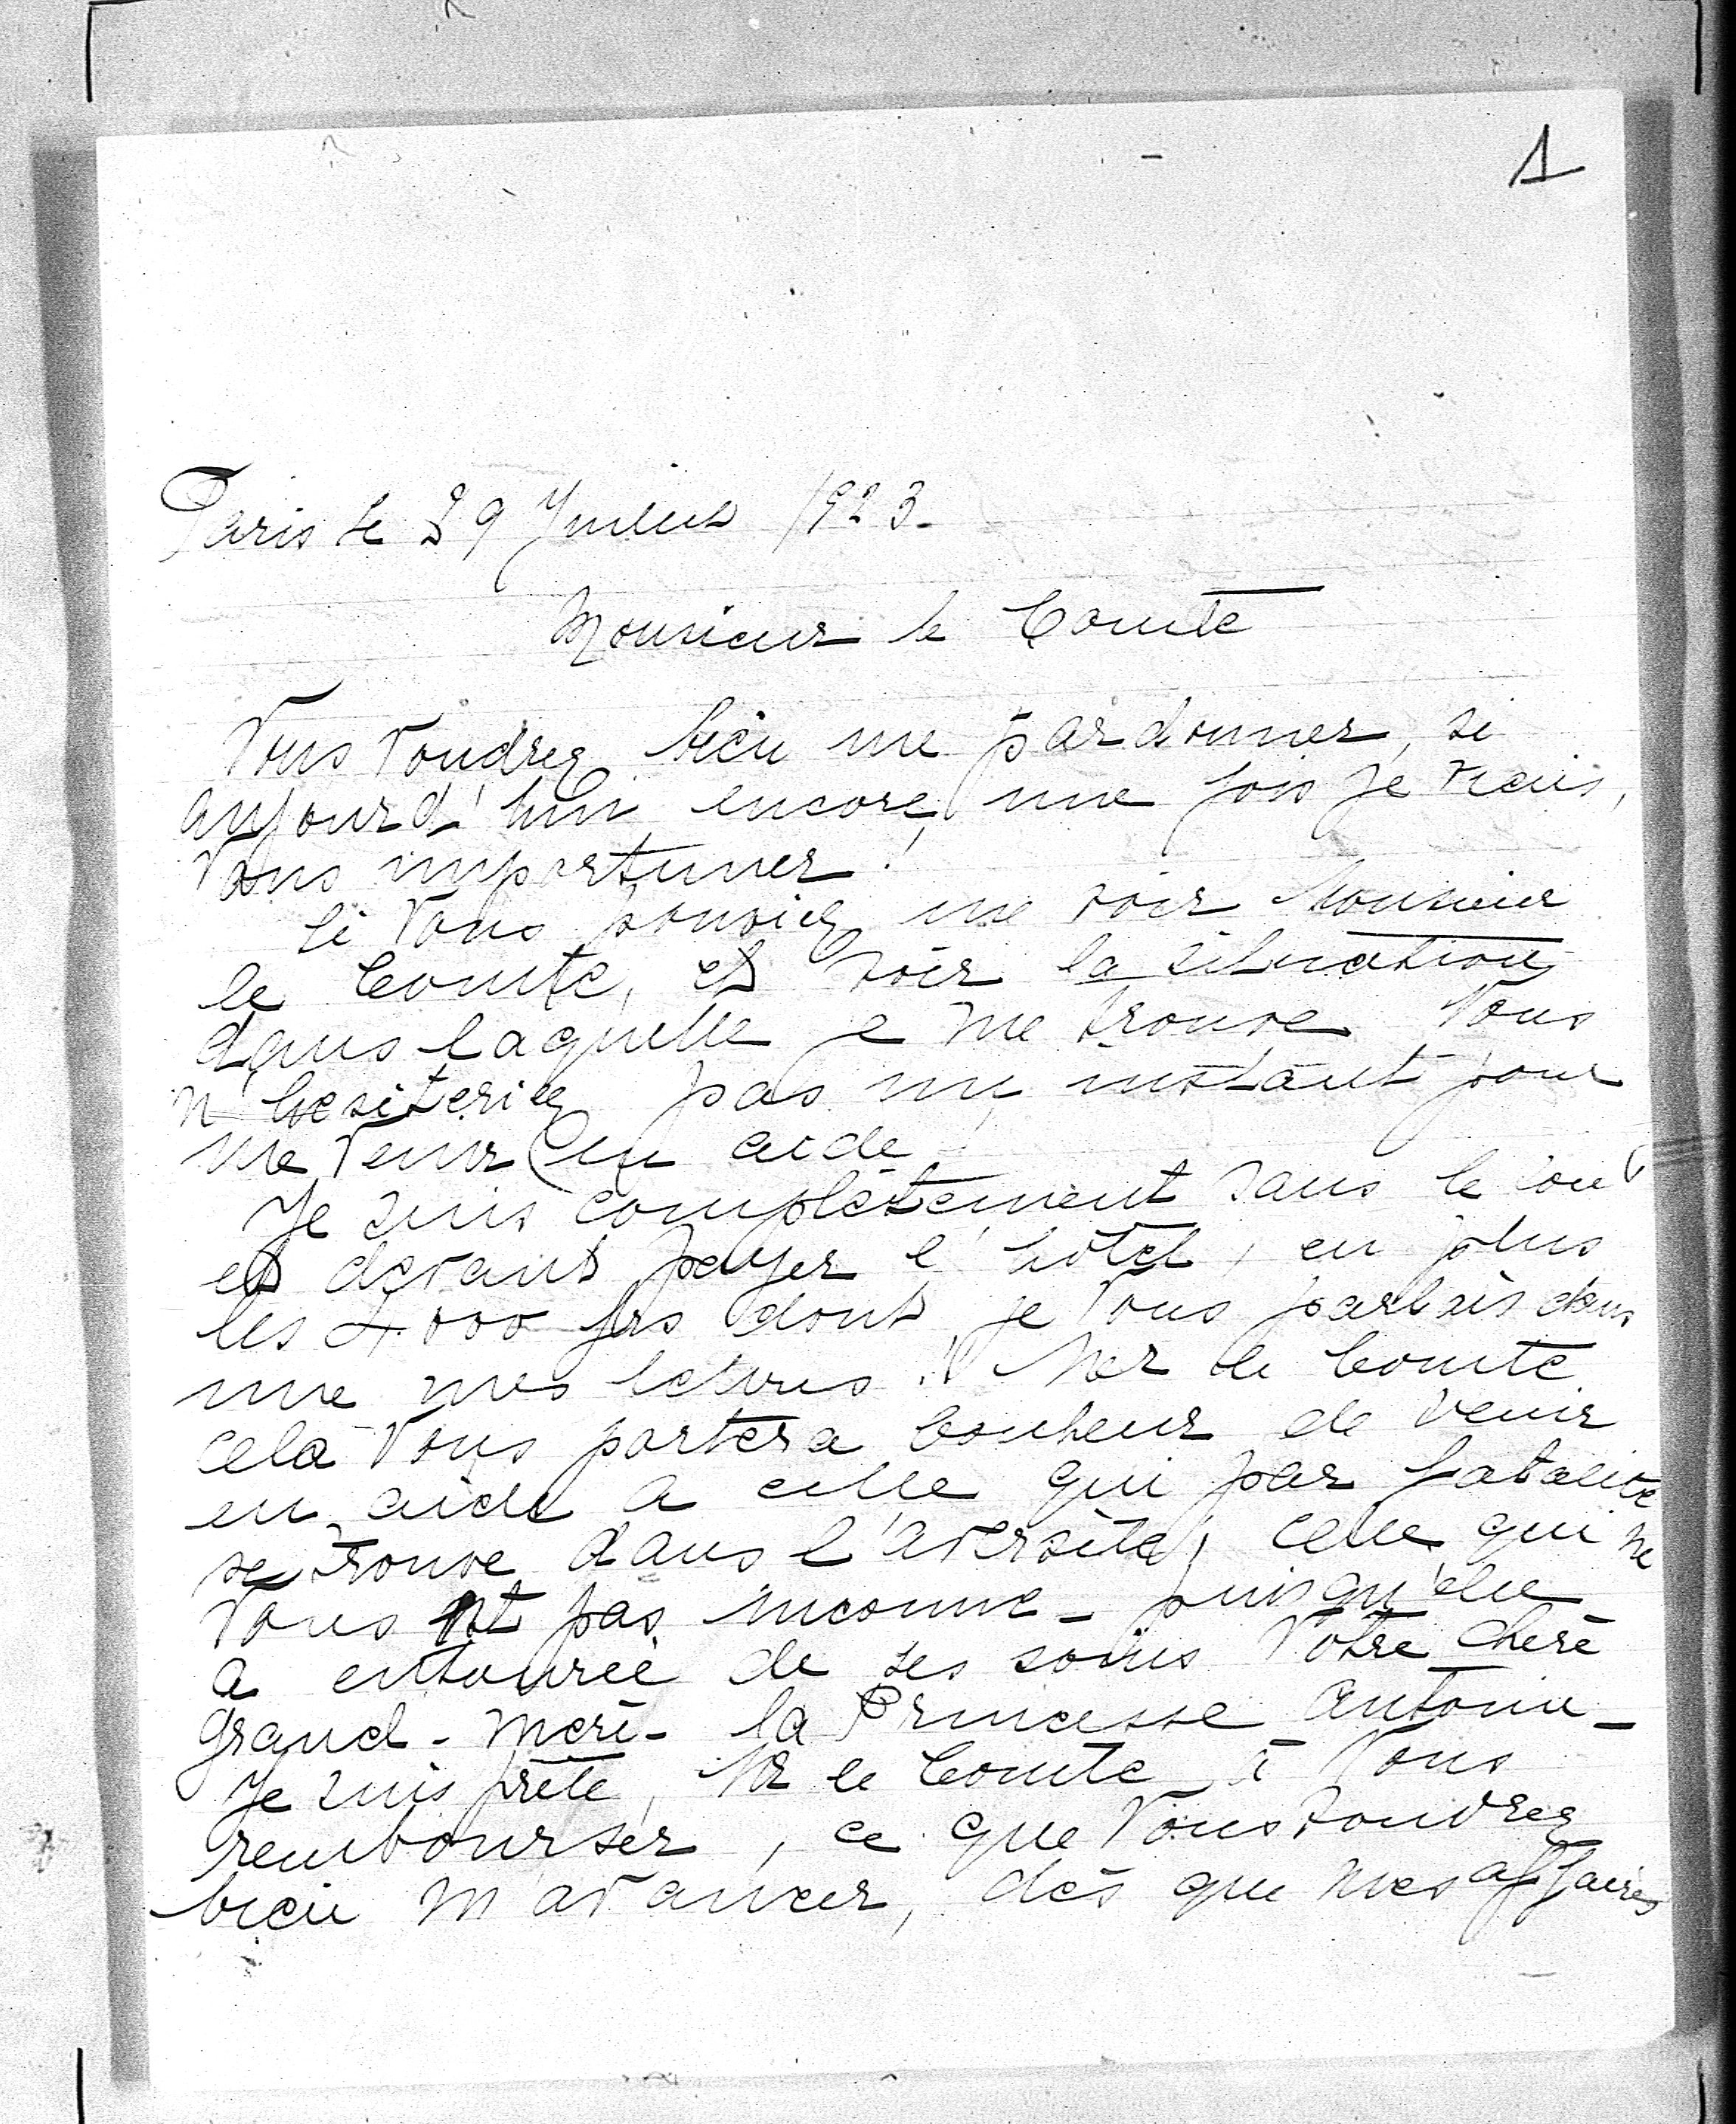 1
Paris le 29 Juillet 1923.
Monsieur le Comte
Vous voudrez bien me pardonner, si
aujourd'hui encore une fois je viens,
vous importuner!
Si vous pouviez me voir Monsieur
le Comte, et voir la situation
dans laquelle je me trouve vous
n'hesiteriez pas un instant pour
me venir en aide
Je suis complètement sans le sou
et devant payer l'hôtel, en plus
les 4.000 frs dont je vous parlais dans
une mes lettres! Mr le Comte
cela vous portera bonheur de venir
en aide a celle qui par fatalité
se trouve dans l'aversité, celle qui ne
vous est pas inconnue - puisqu'elle
a entourée de ses soins votre chère
grand-mère - la Princesse Antonie -
Je suis prête, Mr le Comte à vous
rembourser, ce que vous voudrez
bien m'avancer, dès que mes affaires